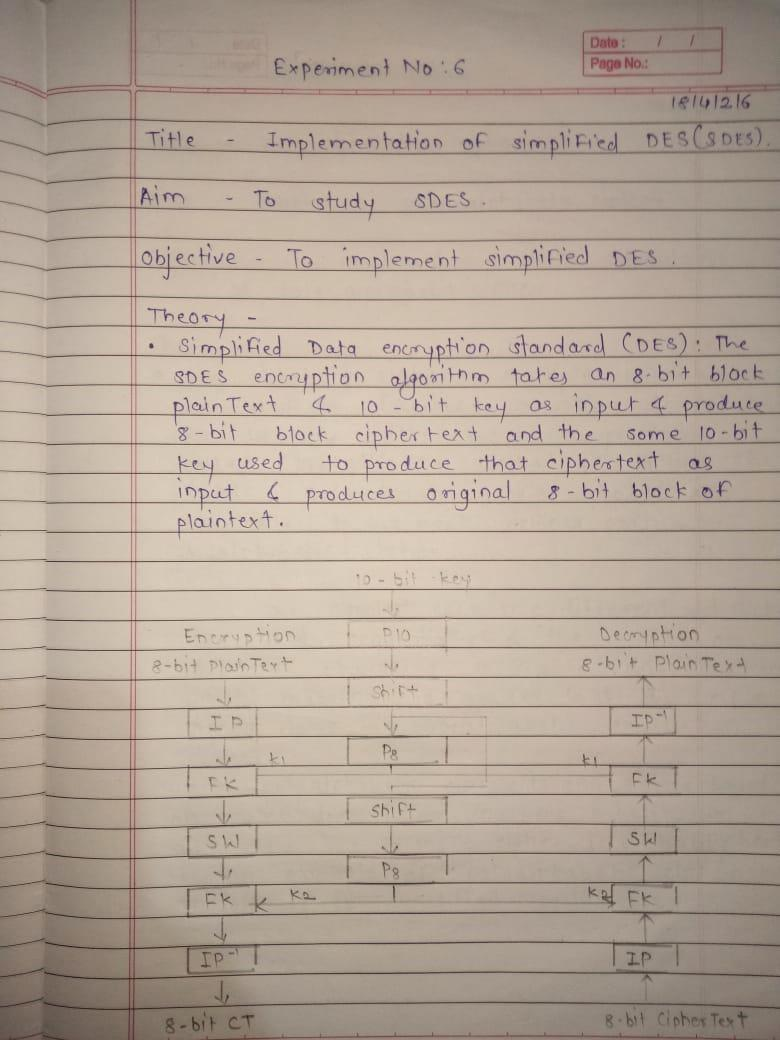 Date : / /
Page No.:
Experiment No : 6
18/4/216
Title - Implementation of simplified DES (SDES).
Aim - To study SDES .
objective - To implement simplified DES .
Theory -
• Simplified Data encryption standard (DES) : The
SDES encryption algorithm takes an 8-bit block
plainText & 10-bit key as input & produce
8-bit block ciphertext and the some 10-bit
key used to produce that ciphertext as
input & produces original 8-bit block of
plaintext.
10-bit key
Encryption P10 Decryption
8-bit PlainText 8-bit PlainText
Shift
IP IP-1
P8
K1 K1
FK FK
Shift
SW SW
P8
FK K2 K2 FK
IP-1 IP
8-bit CT 8-bit CipherText